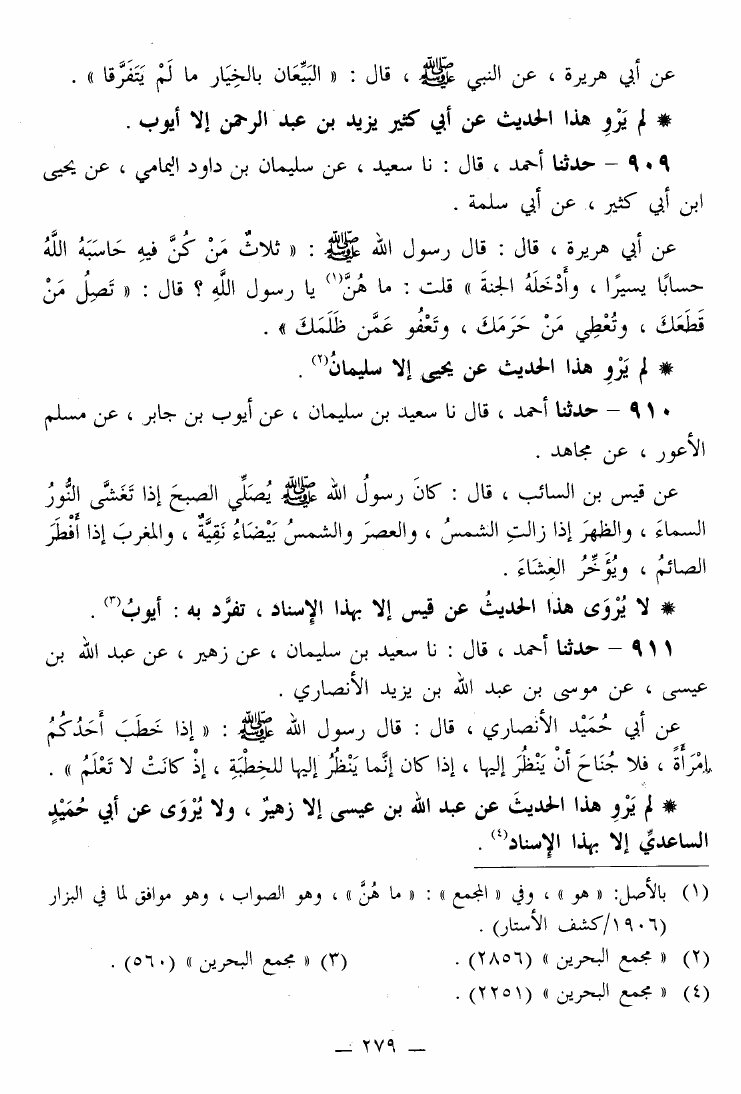 عن أبي هريرة ، عن النبي ﷺ ، قال : « البَيِّعَان بالخِيَار ما لَمْ يَتَفَرَّقا » .
* لم يَرْوِ هذا الحديث عن أبي كثير يزيد بن عبد الرحمن إلا أيوب .
٩٠٩ – حدثنا أحمد ، قال : نا سعيد ، عن سليمان بن داود اليمامي ، عن يحيى
ابن أبي كثير ، عن أبي سلمة .
عن أبي هريرة ، قال : قال رسول الله ﷺ : « ثلاثٌ مَنْ كُنَّ فيهِ حَاسَبَهُ اللَّهُ
حسابًا يسيرًا ، وأَدْخَلَهُ الجنةَ » قلت : ما هُنَّ(١) يا رسول اللَّهِ ؟ قال : « تَصِلُ مَنْ
قَطَعَكَ ، وتُعْطِي مَنْ حَرَمَكَ ، وتَعْفُو عَمَّن ظَلَمَكَ » .
* لم يَرْوِ هذا الحديث عن يحيى إلا سليمانُ(٢) .
٩١٠ – حدثنا أحمد ، قال نا سعيد بن سليمان ، عن أيوب بن جابر ، عن مسلم
الأعور ، عن مجاهد .
عن قيس بن السائب ، قال : كانَ رسولُ الله ﷺ يُصَلِّي الصبحَ إذا تَغَشَّى النُّورُ
السماءَ ، والظهرَ إذا زالتِ الشمسُ ، والعصرَ والشمسُ بَيْضَاءُ نَقِيَّةٌ ، والمغربَ إذا أَفْطَرَ
الصائمُ ، ويُؤَخِّرُ العِشَاءَ .
* لا يُرْوَى هذا الحديثُ عن قيس إلا بهذا الإسناد ، تفرَّد به : أيوبُ(٣) .
٩١١ – حدثنا أحمد ، قال : نا سعيد بن سليمان ، عن زهير ، عن عبد الله بن
عيسى ، عن موسى بن عبد الله بن يزيد الأنصاري .
عن أبي حُمَيْد الأنصاري ، قال : قال رسول الله ﷺ : « إذا خَطَبَ أَحَدُكُمُ
إمْرَأَةً ، فلا جُنَاحَ أنْ يَنْظُرَ إليها ، إذا كان إنَّما يَنْظُرُ إليها للخِطْبَةِ ، إذْ كانَتْ لا تَعْلَمُ » .
* لم يَرْوِ هذا الحديثَ عن عبد الله بن عيسى إلا زهيرٌ ، ولا يُرْوَى عن أبي حُمَيْدٍ
الساعديِّ إلا بهذا الإسناد(٤) .
(١) بالأصل: « هو » ، وفي « المجمع » : « ما هُنَّ » ، وهو الصواب ، وهو موافق لما في البزار
(١٩٠٦/كشف الأستار) .
(٢) « مجمع البحرين » (٢٨٥٦) . (٣) « مجمع البحرين » (٥٦٠) .
(٤) « مجمع البحرين » (٢٢٥١) .
– ٢٧٩ –